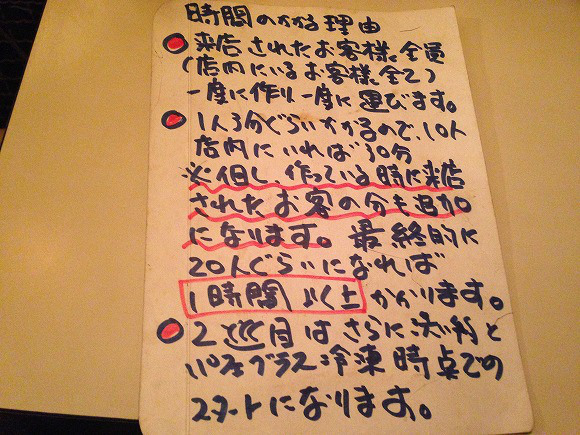 時間のかかる理由
来店されたお客様、全員
(店内にいるお客様、全て)
一度に作り一度に運びます。
1人3分ぐらいかかるので、10人
店内にいれば30分
※但し、作っている時に来店
されたお客の分も追加
になります。最終的に
20人ぐらいになれば
1時間以上かかります。
2巡目はさらに洗浄と
パフェグラス冷凍時点での
スタートになります。